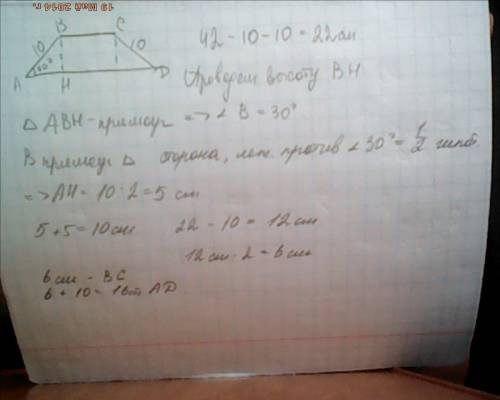 19 Май 2014 г
B C
10 10
60°
A H D
42 - 10 - 10 = 22 см
Проведем высоту BH
△ ABH - прямоуг => ∠ B = 30°
В прямоуг △ сторона, леж. против ∠ 30° = 1/2 гипот.
=> AH = 10 : 2 = 5 см
5 + 5 = 10 см 22 - 10 = 12 см
12 см : 2 = 6 см
6 см - BC
6 + 10 = 16 см AD